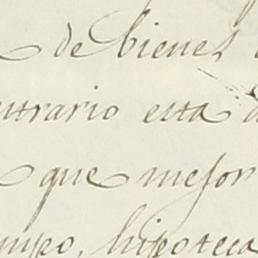 de bienes
ntrario esta
que mejor
mpo, hipoteca